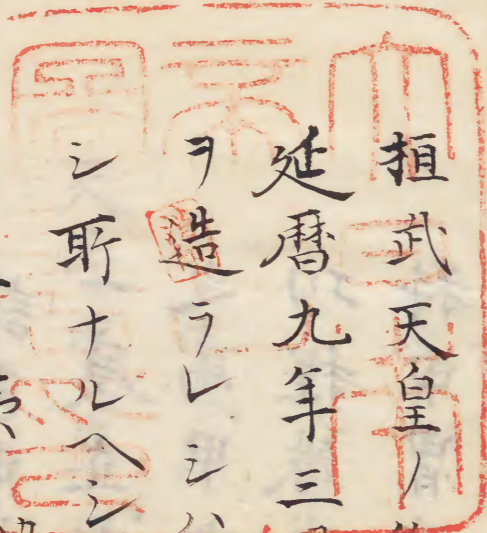 桓武天皇ノ
延暦九年三
ヲ造ラレシハ
シ所ナルヘシ